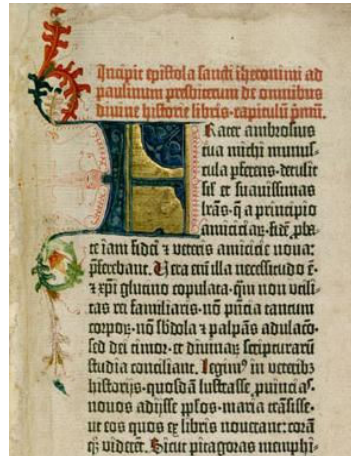 Incipit epistola sancti iheronimi ad
paulinum presbiterum de omnibus
divine historie libris·capitulū pmū.
Frater ambrosius
tua michi munus-
cula pferens·detulit
sil' et suavissimas
lr̄as·q̄ a principio
amiciciaꝝ·fidē pba-
te iam fidei ⁊ veteris amicicie nova:
pferebant. Vera eni illa necessitudo ē·
⁊ xpi glutino copulata·qm̄ non utili-
tas rei familiaris·nō pn̄cia tantum
corpoꝝ·nō sbdola ⁊ palpās adulacō·
sed dei timor·et divinaꝝ scripturarū
studia conciliant. Legimꝰ in veteribꝫ
historijs·quosdā lustrasse pvincias·
novos adijsse pplos·maria trāsisse·
ut eos quos ex libris noverant: corā
qꝫ viderēt. Sicut pitagoras memphi-